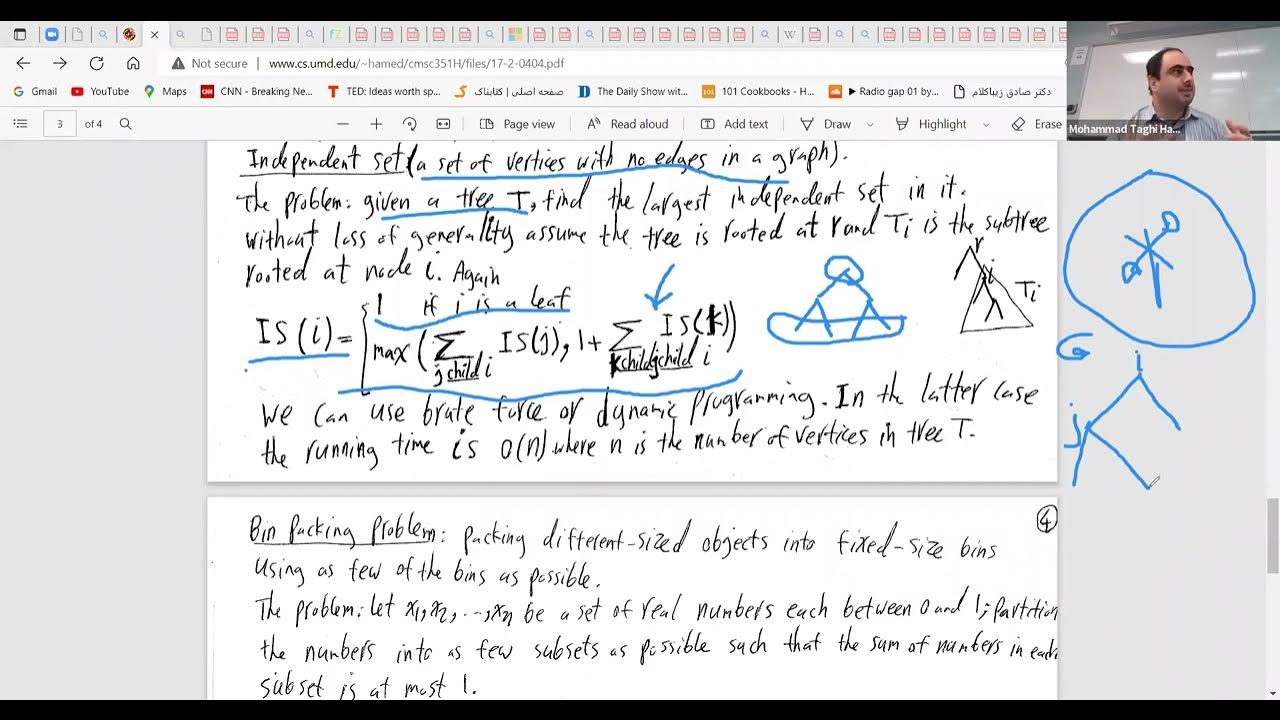 Not secure www.cs.umd.edu/~hamed/cmsc351H/files/17-2-0404.pdf
Gmail YouTube Maps CNN - Breaking Ne... TED: Ideas worth sp... صفحه اصلی | کتابنا... The Daily Show wit... 101 Cookbooks - H... Radio gap 01 by... دکتر صادق زیباکلام
3 of 4 Page view Read aloud Add text Draw Highlight Erase
Mohammad Taghi Ha...
Independent set (a set of vertices with no edges in a graph).
The problem: given a tree T, find the largest independent set in it.
without loss of generality assume the tree is rooted at r and Ti is the subtree
rooted at node i. Again
r
i
Ti
IS(i) = { 1 if i is a leaf
max( ∑ IS(j), 1 + ∑ IS(k))
j child i k child j child i
G
i
j
We can use brute force or dynamic programming. In the latter case
the running time is O(n) where n is the number of vertices in tree T.
④
Bin Packing Problem: packing different-sized objects into fixed-size bins
using as few of the bins as possible.
The problem: Let x1, x2, ..., xn be a set of real numbers each between 0 and 1; partition
the numbers into as few subsets as possible such that the sum of numbers in each
subset is at most 1.